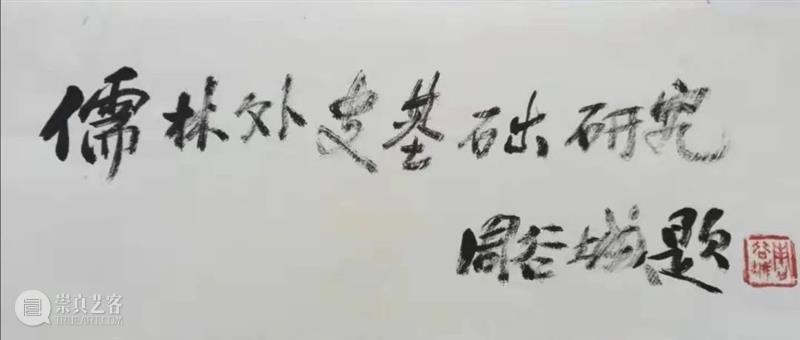 儒林外史基础研究
周谷城题
周谷城
崇真艺客